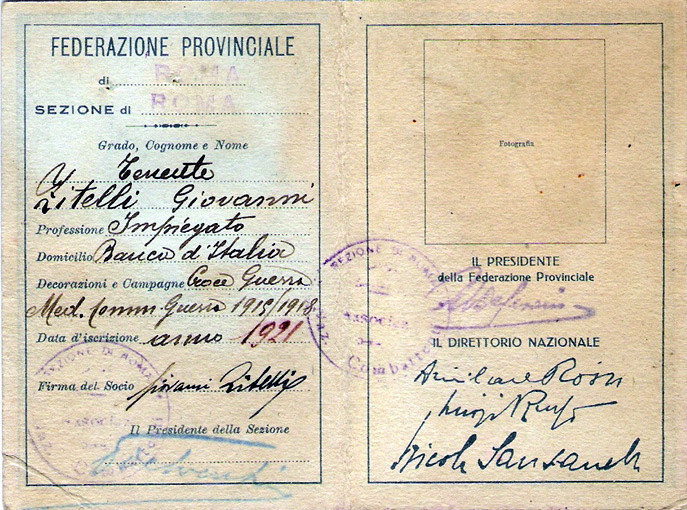 FEDERAZIONE PROVINCIALE
di ROMA
SEZIONE di ROMA
Grado, Cognome e Nome
Tenente
Zitelli Giovanni
Professione Impiegato
Domicilio Banca d'Italia
Decorazioni e Campagne Croce Guerra
Med. Comm. Guerra 1915/1918
Data d'iscrizione anno 1921
Firma del Socio Giovanni Zitelli
Il Presidente della Sezione
SEZIONE DI ROMA
Fotografia
IL PRESIDENTE
della Federazione Provinciale
SEZIONE DI ROMA
Combatten
IL DIRETTORIO NAZIONALE
Amilcare Rossi
Luigi Russo
Nicola Sansanelli